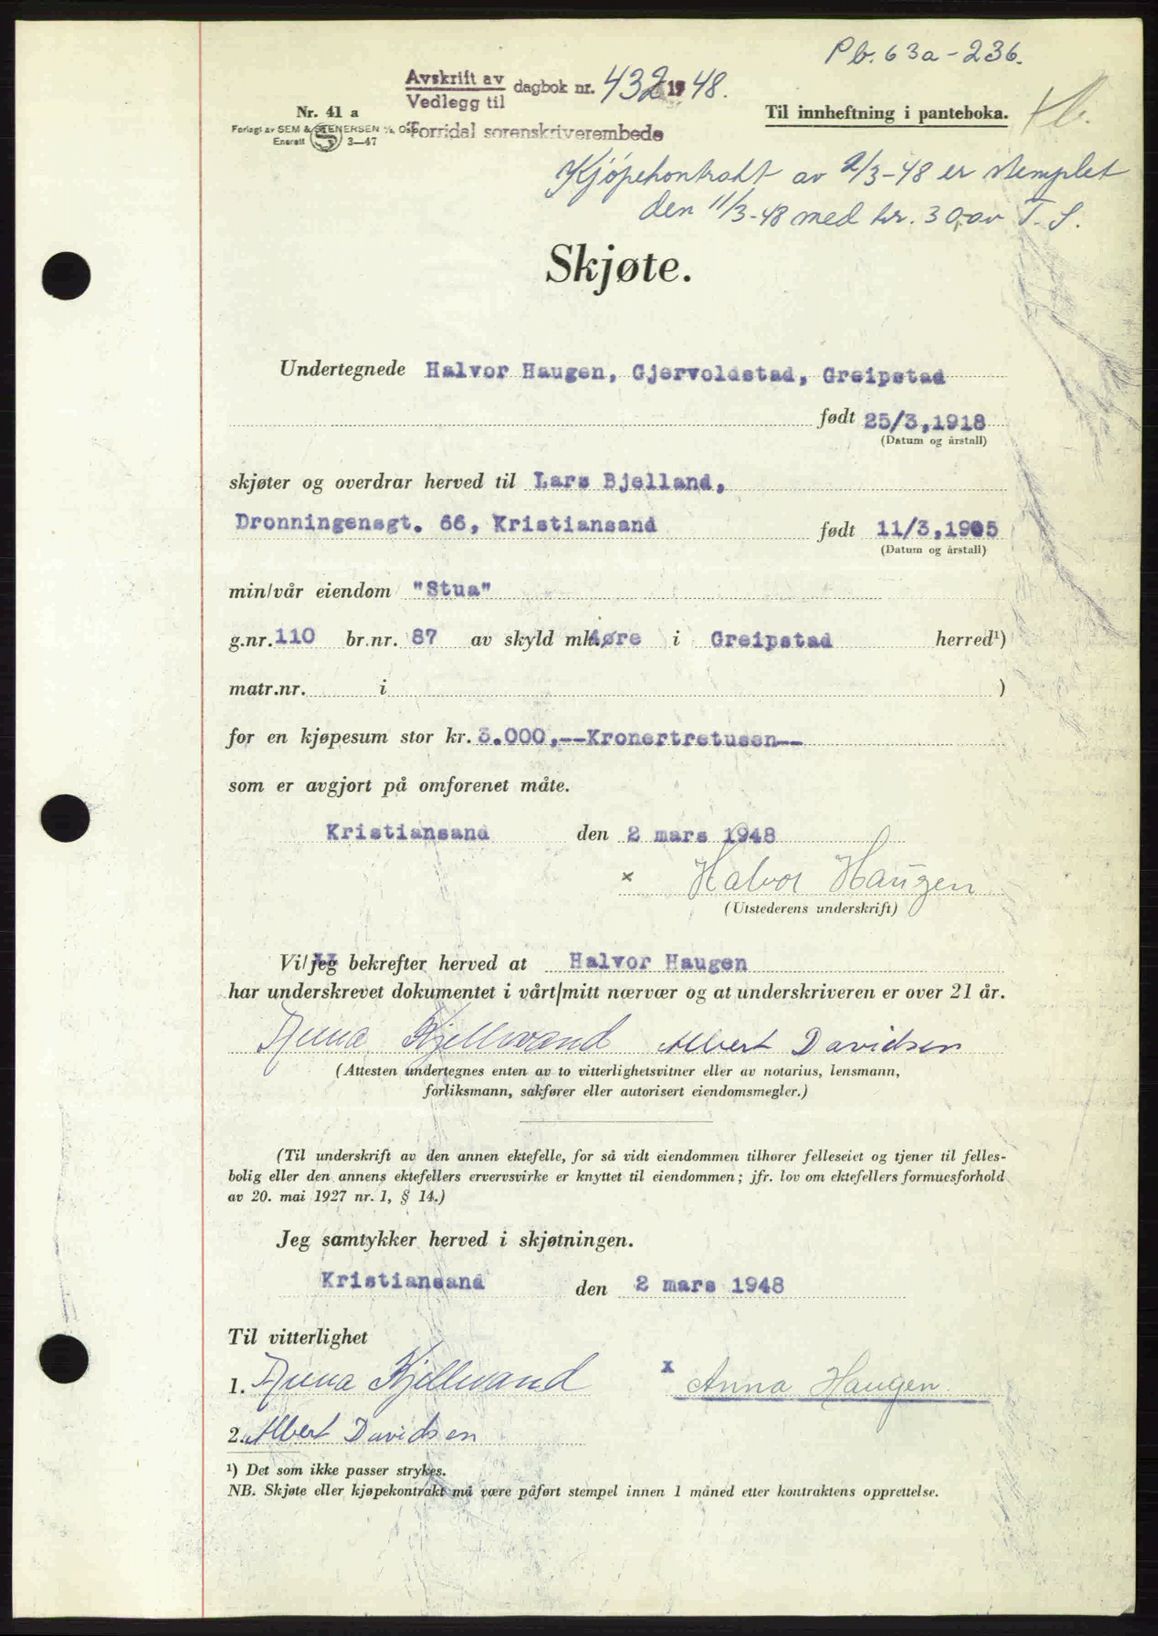 Pb. 63a-236.
Avskrift av
Vedlegg til dagbok nr. 432 1948.
Torridal sorenskriverembede
Nr. 41 a
Forlagt av SEM & STENERSEN A/S, Oslo
Enerett 3—47
Til innheftning i panteboka.
Kjøpekontrakt av 2/3-48 er stemplet
den 11/3-48 med kr. 30,- av T. S.
Skjøte.
Undertegnede Halvor Haugen, Gjervoldstad, Greipstad
født 25/3,1918
(Datum og årstall)
skjøter og overdrar herved til Lars Bjelland,
Dronningensgt. 66, Kristiansand født 11/3,1905
(Datum og årstall)
min/vår eiendom "Stua"
g.nr. 110 br.nr. 87 av skyld mk. øre i Greipstad herred¹)
matr.nr. i )
for en kjøpesum stor kr. 3.000,--Kronertretusen--
som er avgjort på omforenet måte.
Kristiansand den 2 mars 1948
x Halvor Haugen
(Utstederens underskrift)
Vi/jeg bekrefter herved at Halvor Haugen
har underskrevet dokumentet i vårt/mitt nærvær og at underskriveren er over 21 år.
Anna Kjellevand Albert Davidsen
(Attesten undertegnes enten av to vitterlighetsvitner eller av notarius, lensmann,
forliksmann, sakfører eller autorisert eiendomsmegler.)
(Til underskrift av den annen ektefelle, for så vidt eiendommen tilhører felleseiet og tjener til felles-
bolig eller den annens ektefellers ervervsvirke er knyttet til eiendommen; jfr. lov om ektefellers formuesforhold
av 20. mai 1927 nr. 1, § 14.)
Jeg samtykker herved i skjøtningen.
Kristiansand den 2 mars 1948
Til vitterlighet
1. Anna Kjellevand x Anna Haugen
2. Albert Davidsen
¹) Det som ikke passer strykes.
NB. Skjøte eller kjøpekontrakt må være påført stempel innen 1 måned etter kontraktens opprettelse.